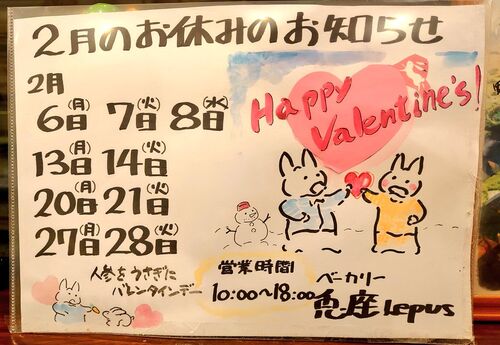 2月のお休みのお知らせ
Happy Valentine's!
2月
6日(月) 7日(火) 8日(水)
13日(月) 14日(火)
20日(月) 21日(火)
27日(月) 28日(火)
人参をうさぎに
バレンタインデー
営業時間
10:00~18:00
ベーカリー
兎座Lepus